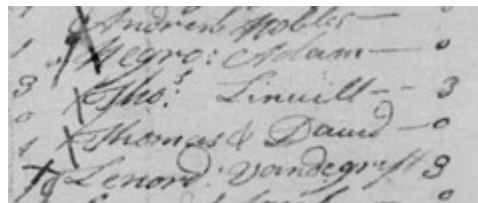 Andrew Nobles — 0
1 Negro: Adam — 0
3 Tho.s Linvill -- 3
0
1 Thomas & David — 0
Lenord: Vandegrift 3